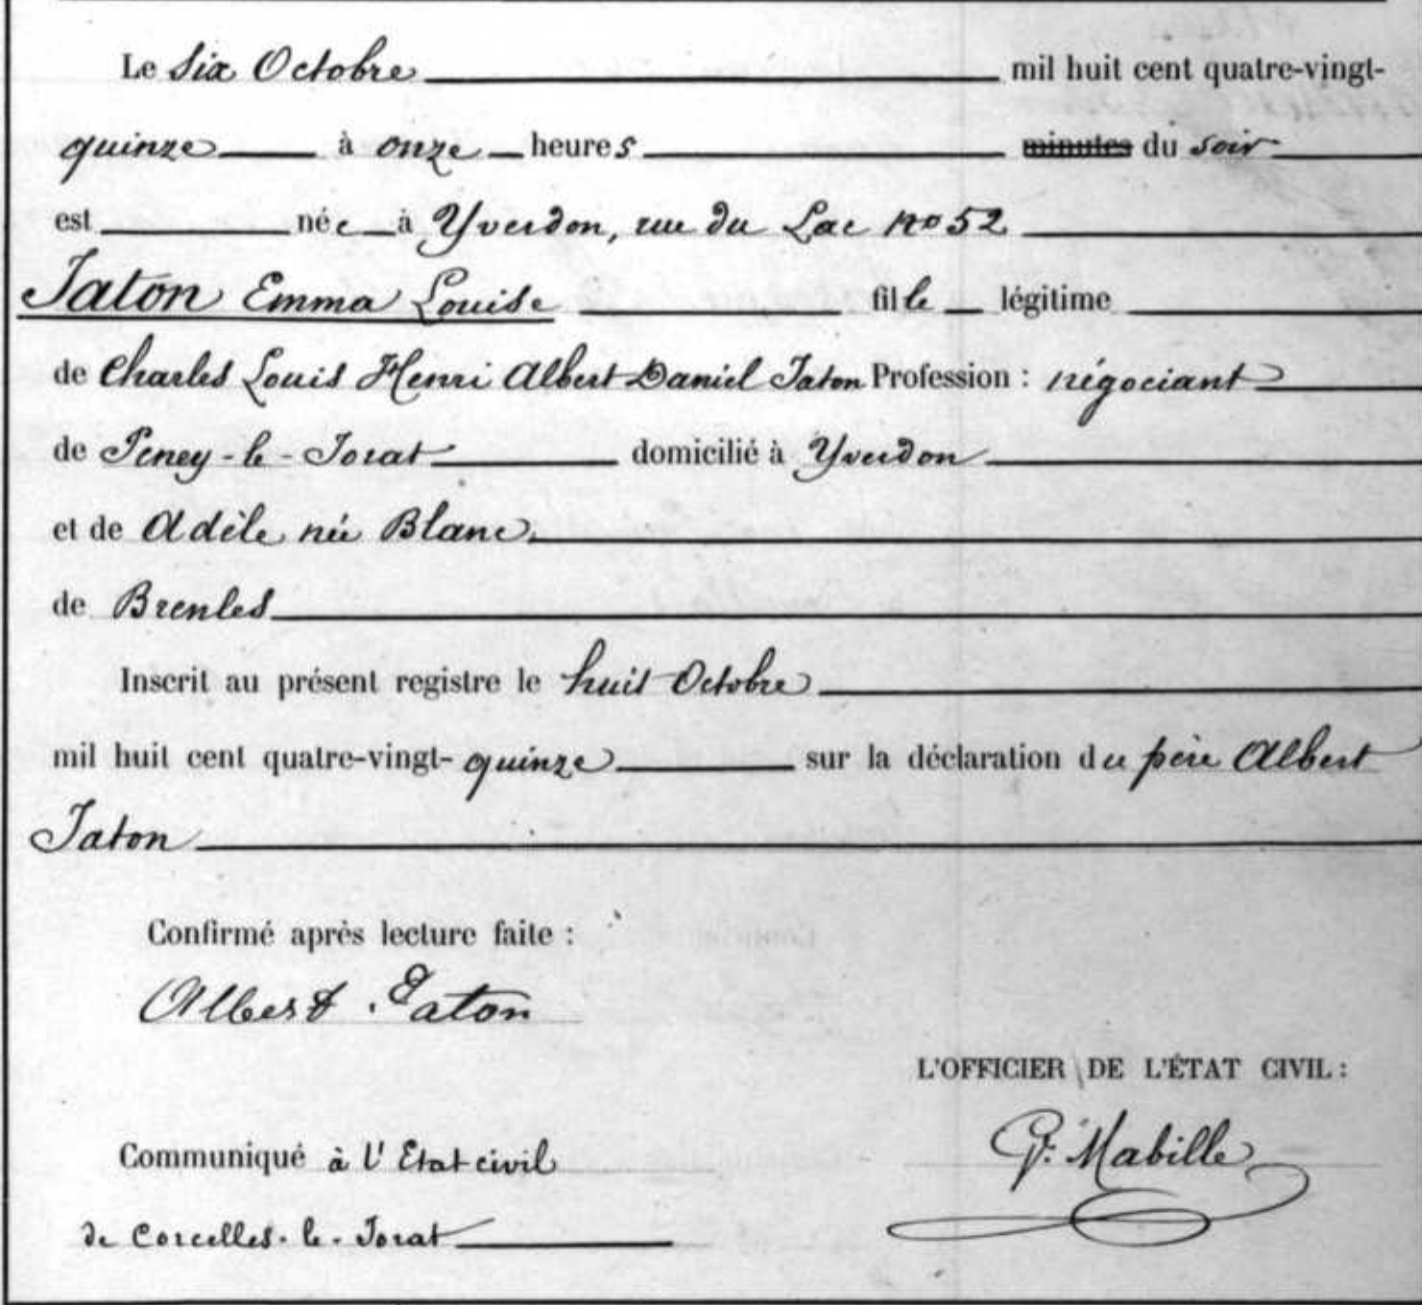 Le six Octobre mil huit cent quatre-vingt-
quinze à onze heures minutes du soir
est née à Yverdon, rue du Lac nº 52
Jaton Emma Louise fille légitime
de Charles Louis Henri Albert Daniel Jaton Profession : négociant
de Peney-le-Jorat domicilié à Yverdon
et de Adèle née Blanc.
de Brenles
Inscrit au présent registre le huit Octobre
mil huit cent quatre-vingt-quinze sur la déclaration du père Albert
Jaton
Confirmé après lecture faite :
Albert Jaton
L'OFFICIER DE L'ÉTAT CIVIL :
Communiqué à l'Etat civil
G. Mabille
de Corcelles-le-Jorat